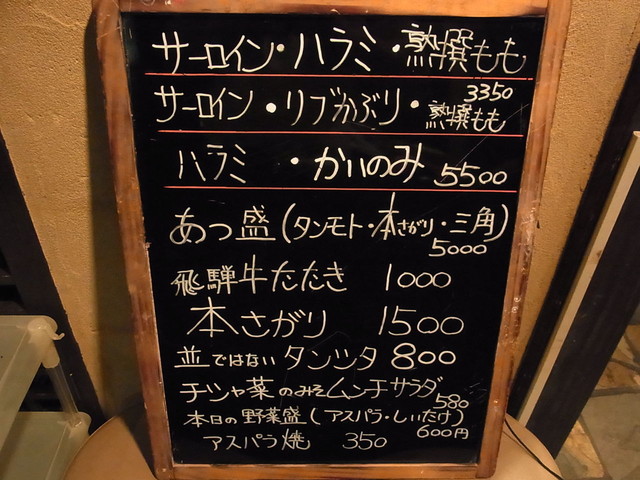 サーロイン・ハラミ・熟撰もも
3350
サーロイン・リブかぶり・熟撰もも
ハラミ ・かいのみ 5500
あつ盛(タンモト・本さがり・三角)
5000
飛騨牛たたき 1000
本さがり 1500
並ではないタンツタ 800
チシャ菜のみそムンチサラダ
580
本日の野菜盛(アスパラ・しいたけ)
600円
アスパラ焼 350